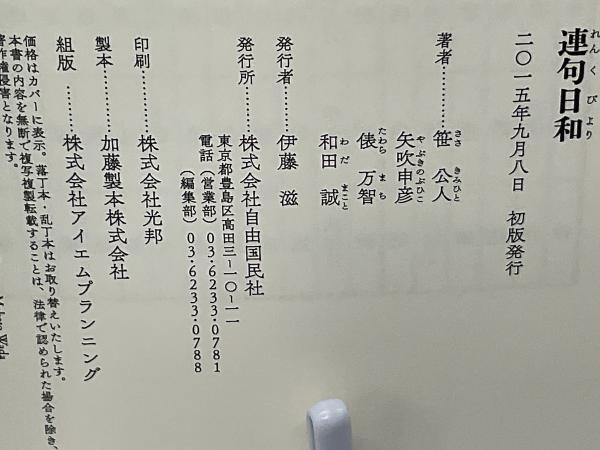 連句日和
れんくびより
二〇一五年九月八日　初版発行
著者………笹　公人
ささ　きみひと
矢吹申彦
やぶきのぶひこ
俵　万智
たわら　まち
和田　誠
わだ　まこと
発行者………伊藤　滋
発行所………株式会社自由国民社
東京都豊島区高田三−一〇−一一
電話（営業部）03・6233・0781
（編集部）03・6233・0788
印刷………株式会社光邦
製本………加藤製本株式会社
組版………株式会社アイエムプランニング
価格はカバーに表示。落丁本・乱丁本はお取り替えいたします。
本書の内容を無断で複写複製転載することは、法律で認められた場合を除き、
著作権侵害となります。